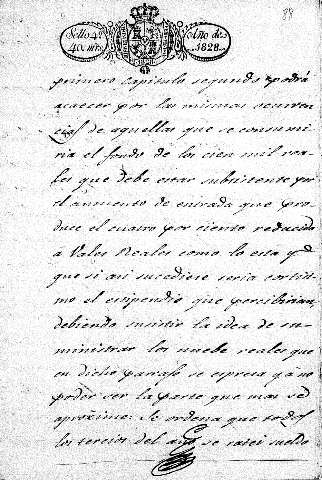 Sello 4º
40 mrs.
Año de
1828.
88
primero Capitulo segundo podrá
acaecer por las mismas ocurren
cias de aquellas que se consumi
ria el fondo de los cien mil rea
les que debe estar subsistente por
el aumento de entrada que pro
duce el cuatro por ciento reducido
a Vales Reales como lo esta y
que si asi sucediese seria cortisi
mo el estipendio que percibirian,
debiendo surtir la idea de su
ministrar los nuebe reales que
en dicho parrafo se espresa y á no
poder ser la parte que mas se
aproxime: Se ordena que todos
los tercios del año se ratei sueldo